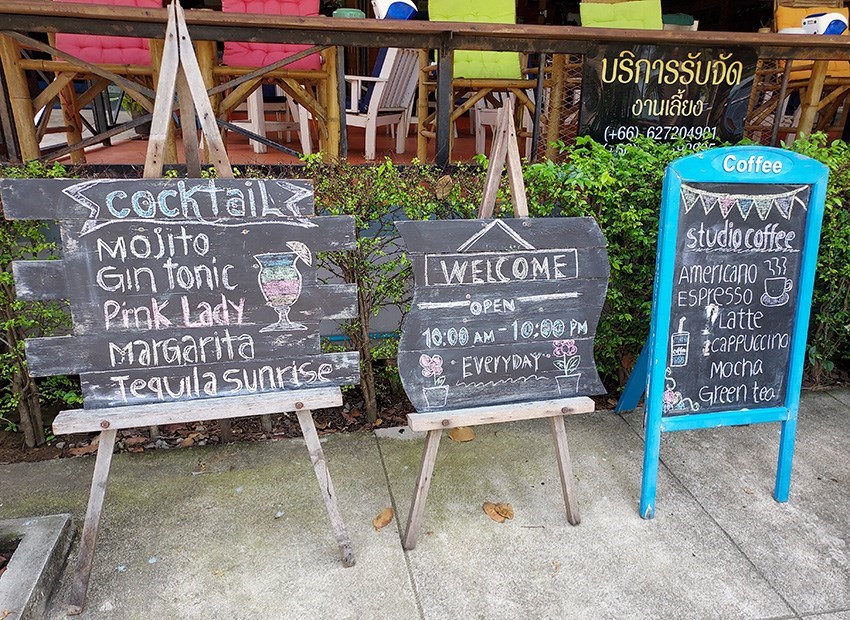 บริการรับจัด
งานเลี้ยง
(+66) 627204901
Cocktail
Mojito
Gin tonic
Pink Lady
Margarita
Tequila sunrise
WELCOME
OPEN
10:00 AM - 10:00 PM
Everyday
Coffee
studio coffee
Americano
Espresso
Latte
cappuccino
Mocha
Green tea